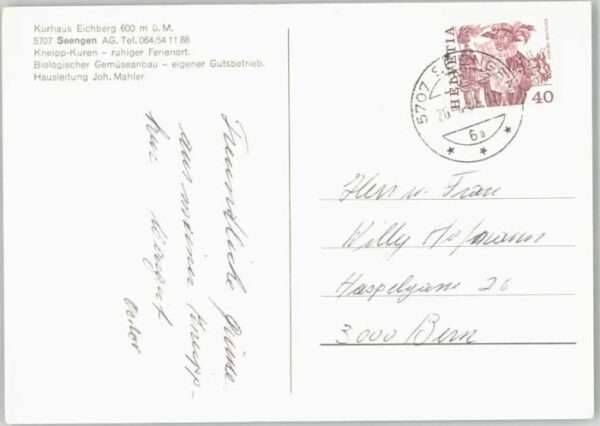 Kurhaus Eichberg 600 m ü. M.
5707 Seengen AG. Tel. 064/54 11 88
Kneipp-Kuren – ruhiger Ferienort.
Biologischer Gemüseanbau – eigener Gutsbetrieb.
Hausleitung Joh. Mahler
Freundliche Grüsse
aus meiner Kneipp-
kur
HELVETIA
40
5707 SEENGEN
6a
Herr u. Frau
Willy Hofmann
Haspelgasse 26
3000 Bern